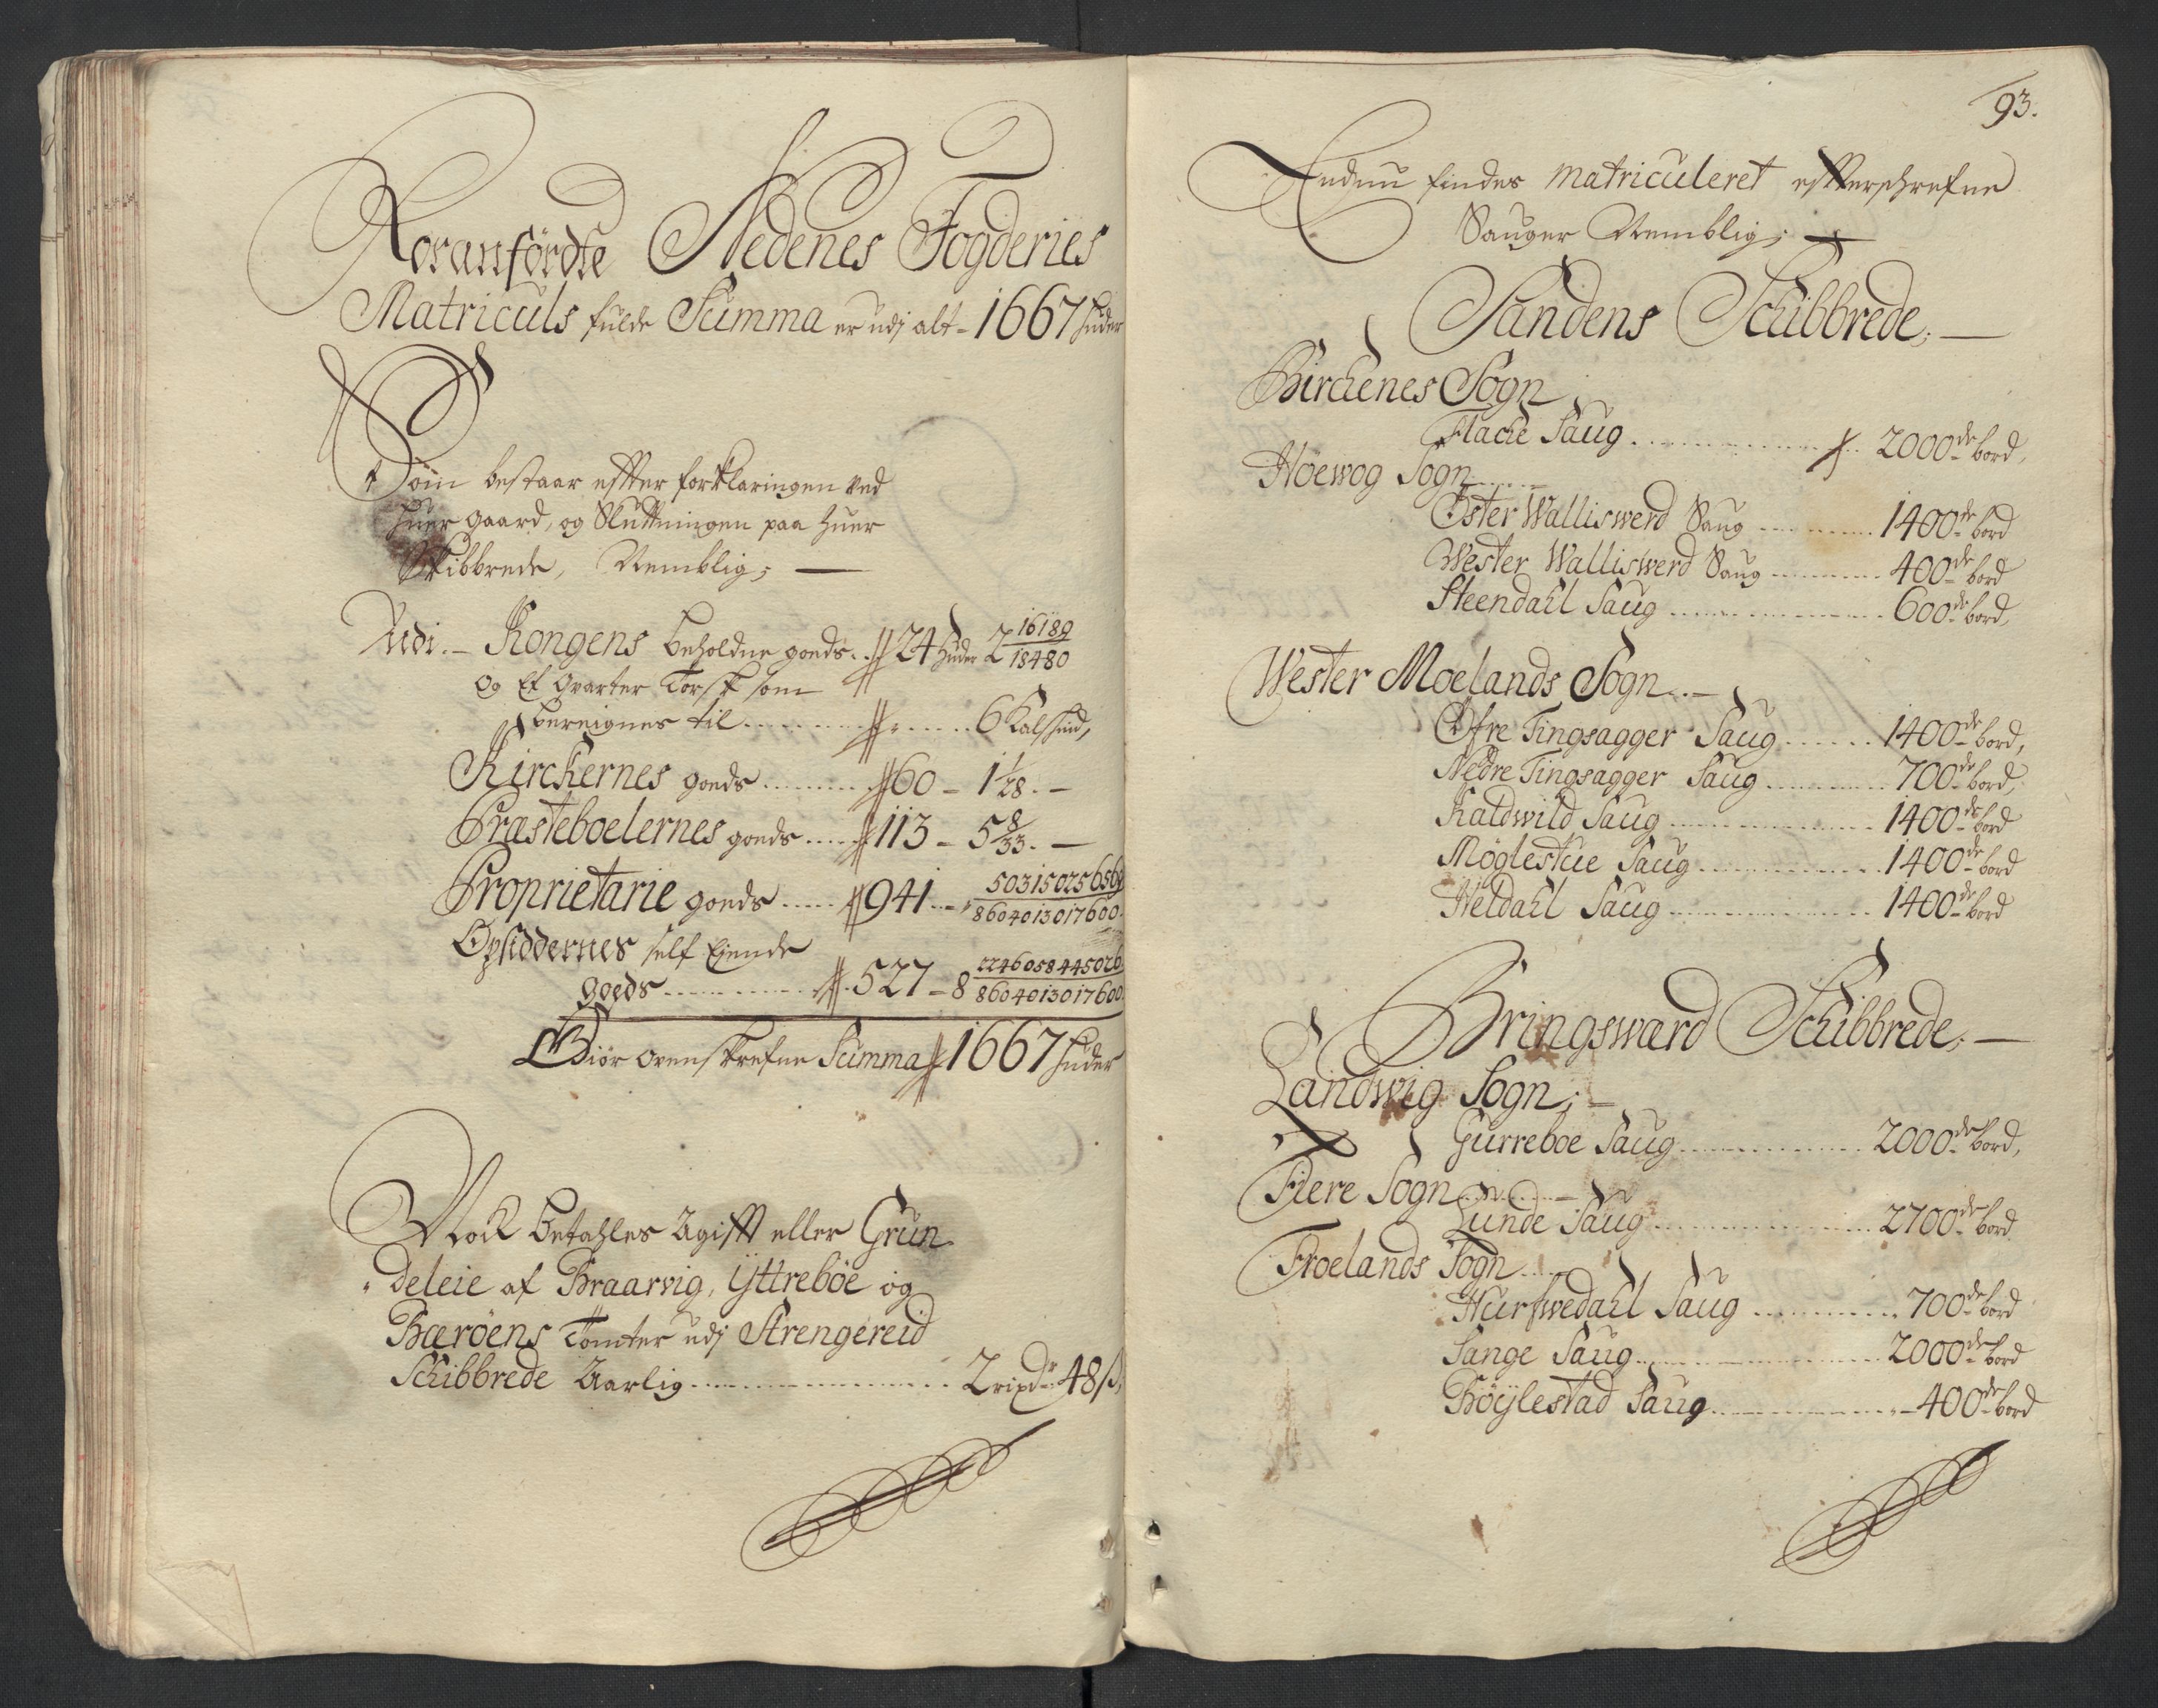 Foranfördte Nedenes Fogderies
Matriculs fulde Summa er udj alt - 1667 huder
Som bestaar effter forklaringen ved
huer gaard, og Sluttningen paa huer
Skibbrede, Nemblig; —
Udi. - Kongens beholdne goeds .. 24 huder 2 16189/18480
og Et Qvarter Torsk som
bereignes til .......... " ..... 6 Kalfschind,
Kirckernes goeds ......... 60 - 1 1/28. —
Præsteboelernes goeds ..... 113 - 5 8/33. —
Proprietarie goeds ...... 941 .. - " 503150256569/8604013017600.
Opsiddernes self Eiende
goeds ............. 527 - 8 2246058445026/8604013017600.
Giör ovenskrefne Summa 1667 huder
Nock betahles Agifft eller Grun-
" deleie af Braarvig, Yttreböe og
Bæröens Tomter udj Strengereid
Schibbrede Aarlig .................. 2 rixdr 48 ß,
93.
Endnu findes matriculeret effterschrefne
Sauger Nemblig; —
Sandens Schibbrede; —
Birckenes Sogn
Flacke Saug ................ 2000de bord,
Höewog Sogn ......
Öster Walliswerd Saug ........... 1400de bord
Wester Walliswerd Saug ........... 400de bord
Steendahl Saug .................. 600de bord,
Wester Moelands Sogn .. —
Öfre Tingsagger Saug ...... 1400de bord,
Nedre Tingsagger Saug ............ 700de bord,
Kaldwild Saug .................. 1400de bord
Möglestue Saug ................ 1400de bord
Heldahl Saug .................. 1400de bord
Bringswærd Schibbrede; —
Landwig Sogn; —
Gurreboe Saug ................. 2000de bord,
Fiere Sogn ......... —
Lunde Saug ................... 2700de bord
Froelands Sogn ....
Hurswedahl Saug ............ 700de bord
Sange Saug ..................... 2000de bord
Böylestad Saug ................ " - 400de bord